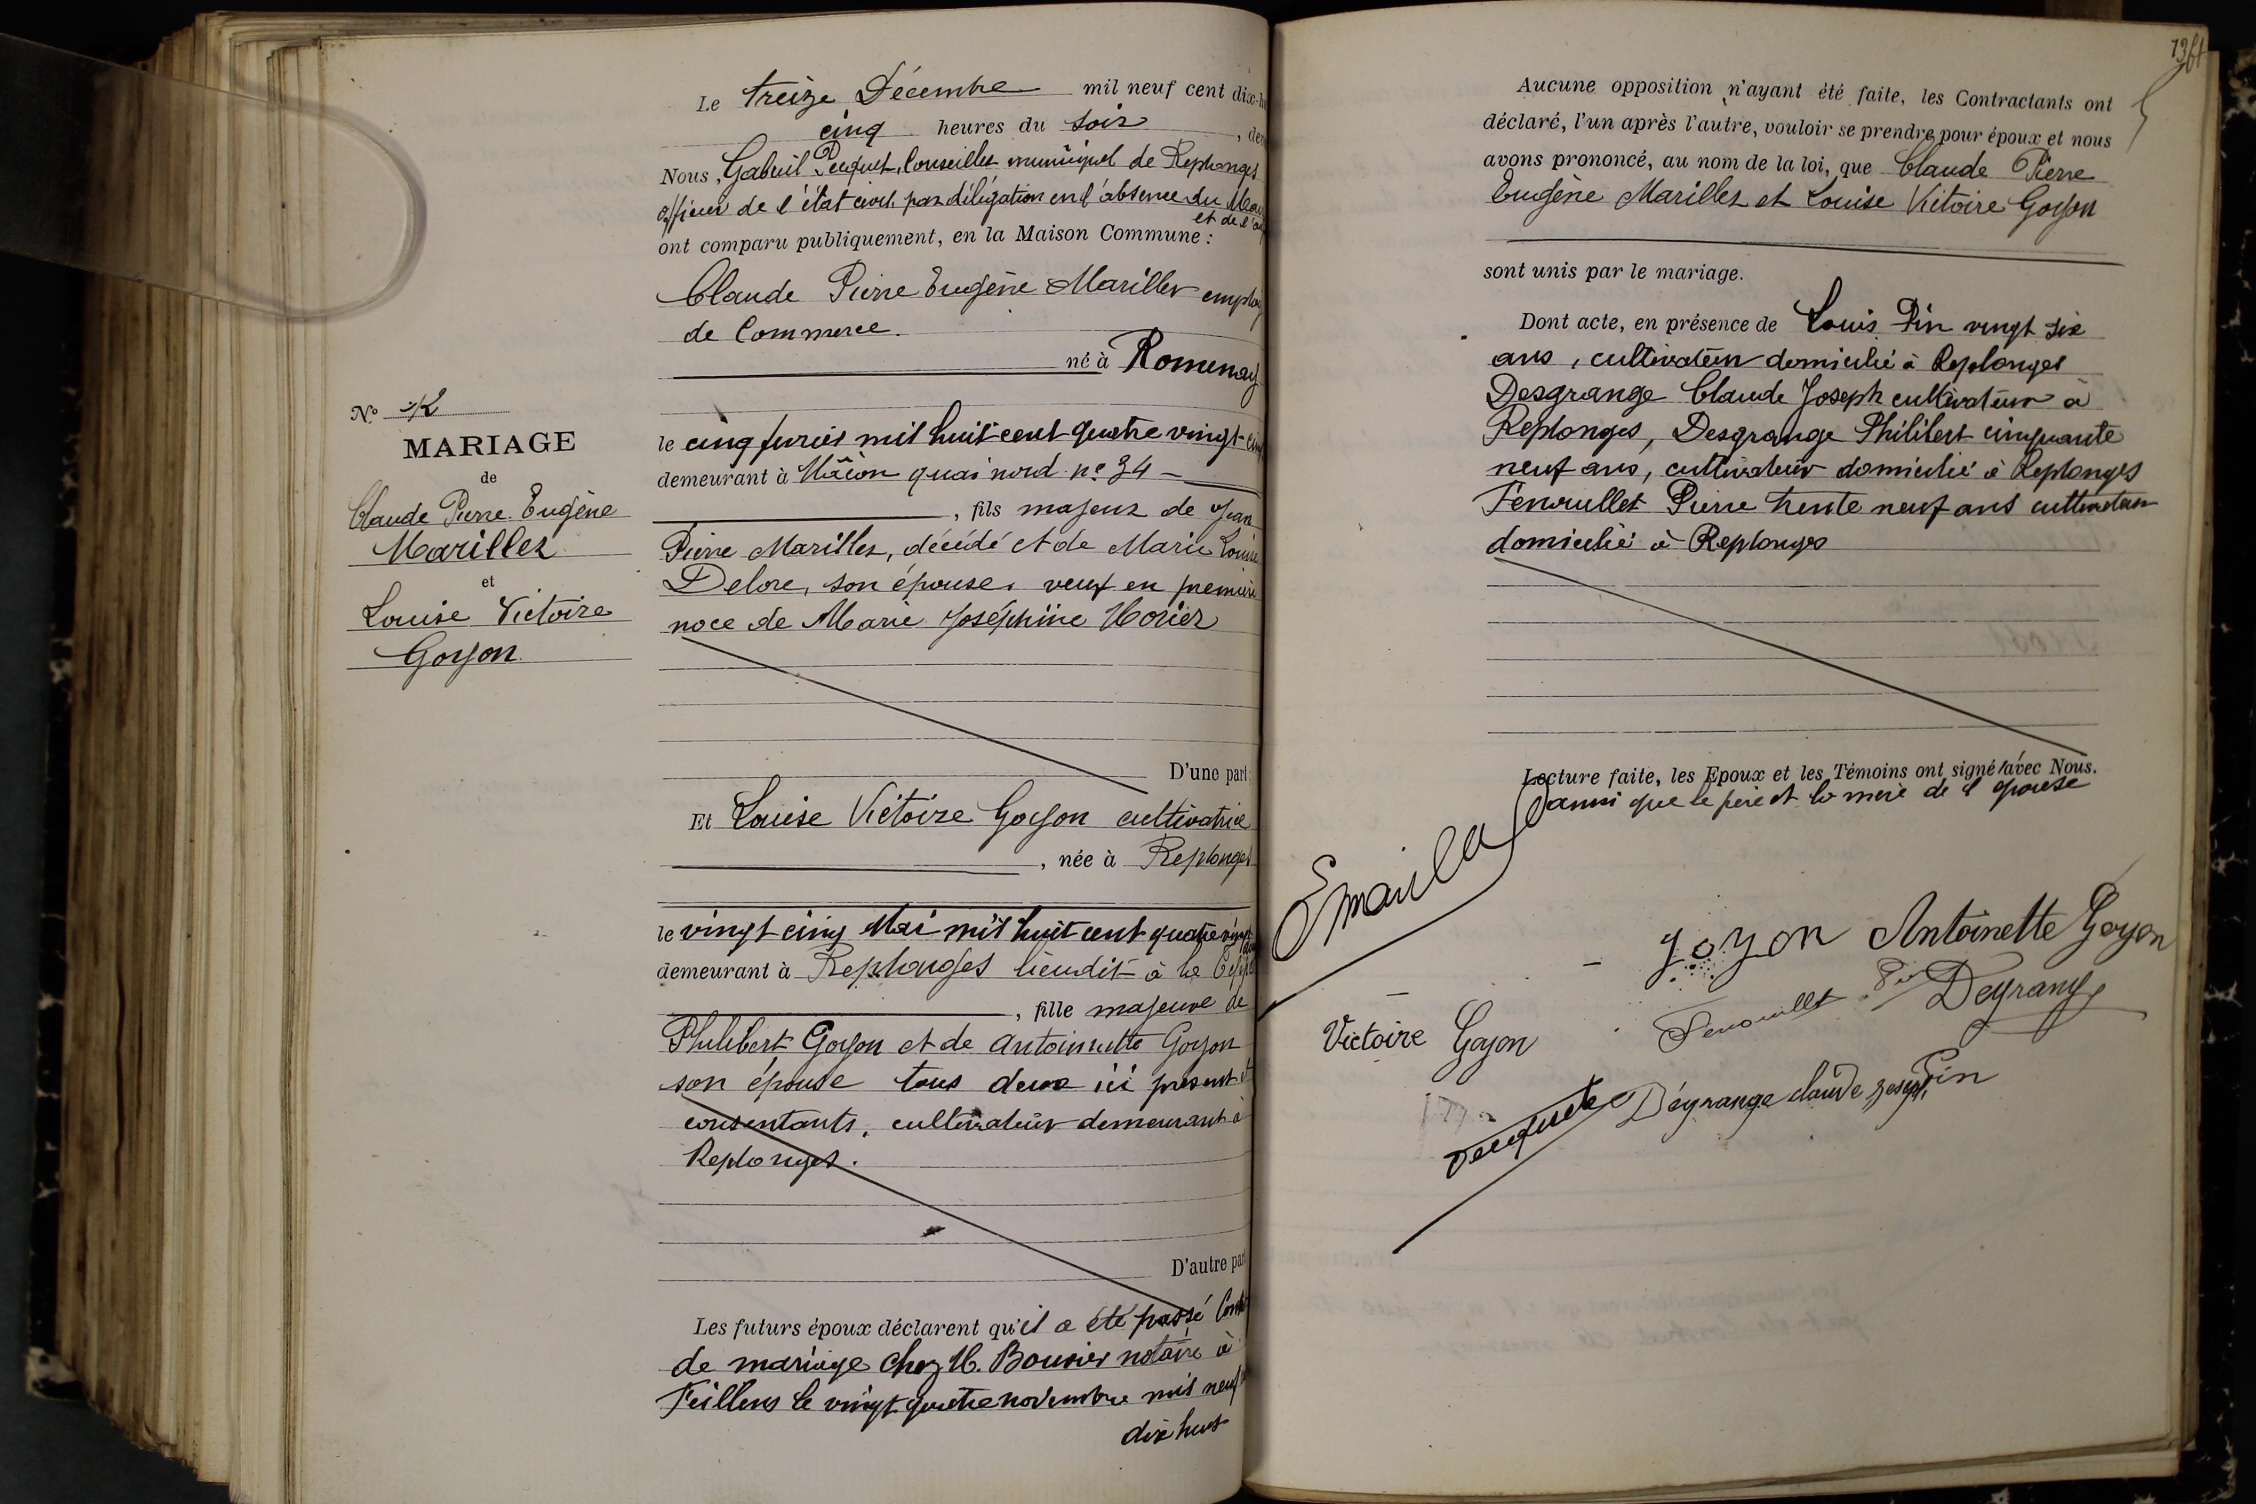 Le treize Décembre mil neuf cent dix-h
cinq heures du soir, dev
Nous, Gabriel Pecquet, Conseiller municipal de Replonges
officier de l'état civil, par délégation en l'absence du Maire
et de l'
ont comparu publiquement, en la Maison Commune :
Claude Pierre Eugène Mariller employ
de Commerce
né à Romenay
No 12
MARIAGE
de
Claude Pierre Eugène
Mariller
et
Louise Victoire
Goyon
le cinq février mil huit cent quatre vingt cinq
demeurant à Mâcon quai nord no 34
, fils majeur de Jean
Pierre Mariller, décédé et de Marie Louise
Delore, son épouse, veuf en première
noce de Marie Joséphine Morier
D'une part ;
Et Louise Victoire Goyon cultivatrice
, née à Replonges
le vingt cinq Mai mil huit cent quatre vingt
demeurant à Replonges lieudit à la
, fille majeure de
Philibert Goyon et de Antoinette Goyon
son épouse tous deux ici présents et
consentants, cultivateurs demeurant à
Replonges.
D'autre part
Les futurs époux déclarent qu'il a été passé Cont
de mariage chez M. Bouvier notaire à
Feillens le vingt quatre novembre mil neuf
dix huit
Aucune opposition n'ayant été faite, les Contractants ont
déclaré, l'un après l'autre, vouloir se prendre pour époux et nous
avons prononcé, au nom de la loi, que Claude Pierre
Eugène Mariller et Louise Victoire Goyon
sont unis par le mariage.
Dont acte, en présence de Louis Pin vingt six
ans, cultivateur domicilié à Replonges
Desgrange Claude Joseph cultivateur à
Replonges, Desgrange Philibert cinquante
neuf ans, cultivateur domicilié à Replonges
Fenouillet Pierre trente neuf ans cultivateur
domicilié à Replonges
Lecture faite, les Epoux et les Témoins ont signé avec Nous.
ainsi que le père et la mère de l'épouse
E Mariller
Goyon Antoinette Goyon
Fenouillet Pre Deyrange
Victoire Goyon
Pecquet Déyrange claude joseph Pin